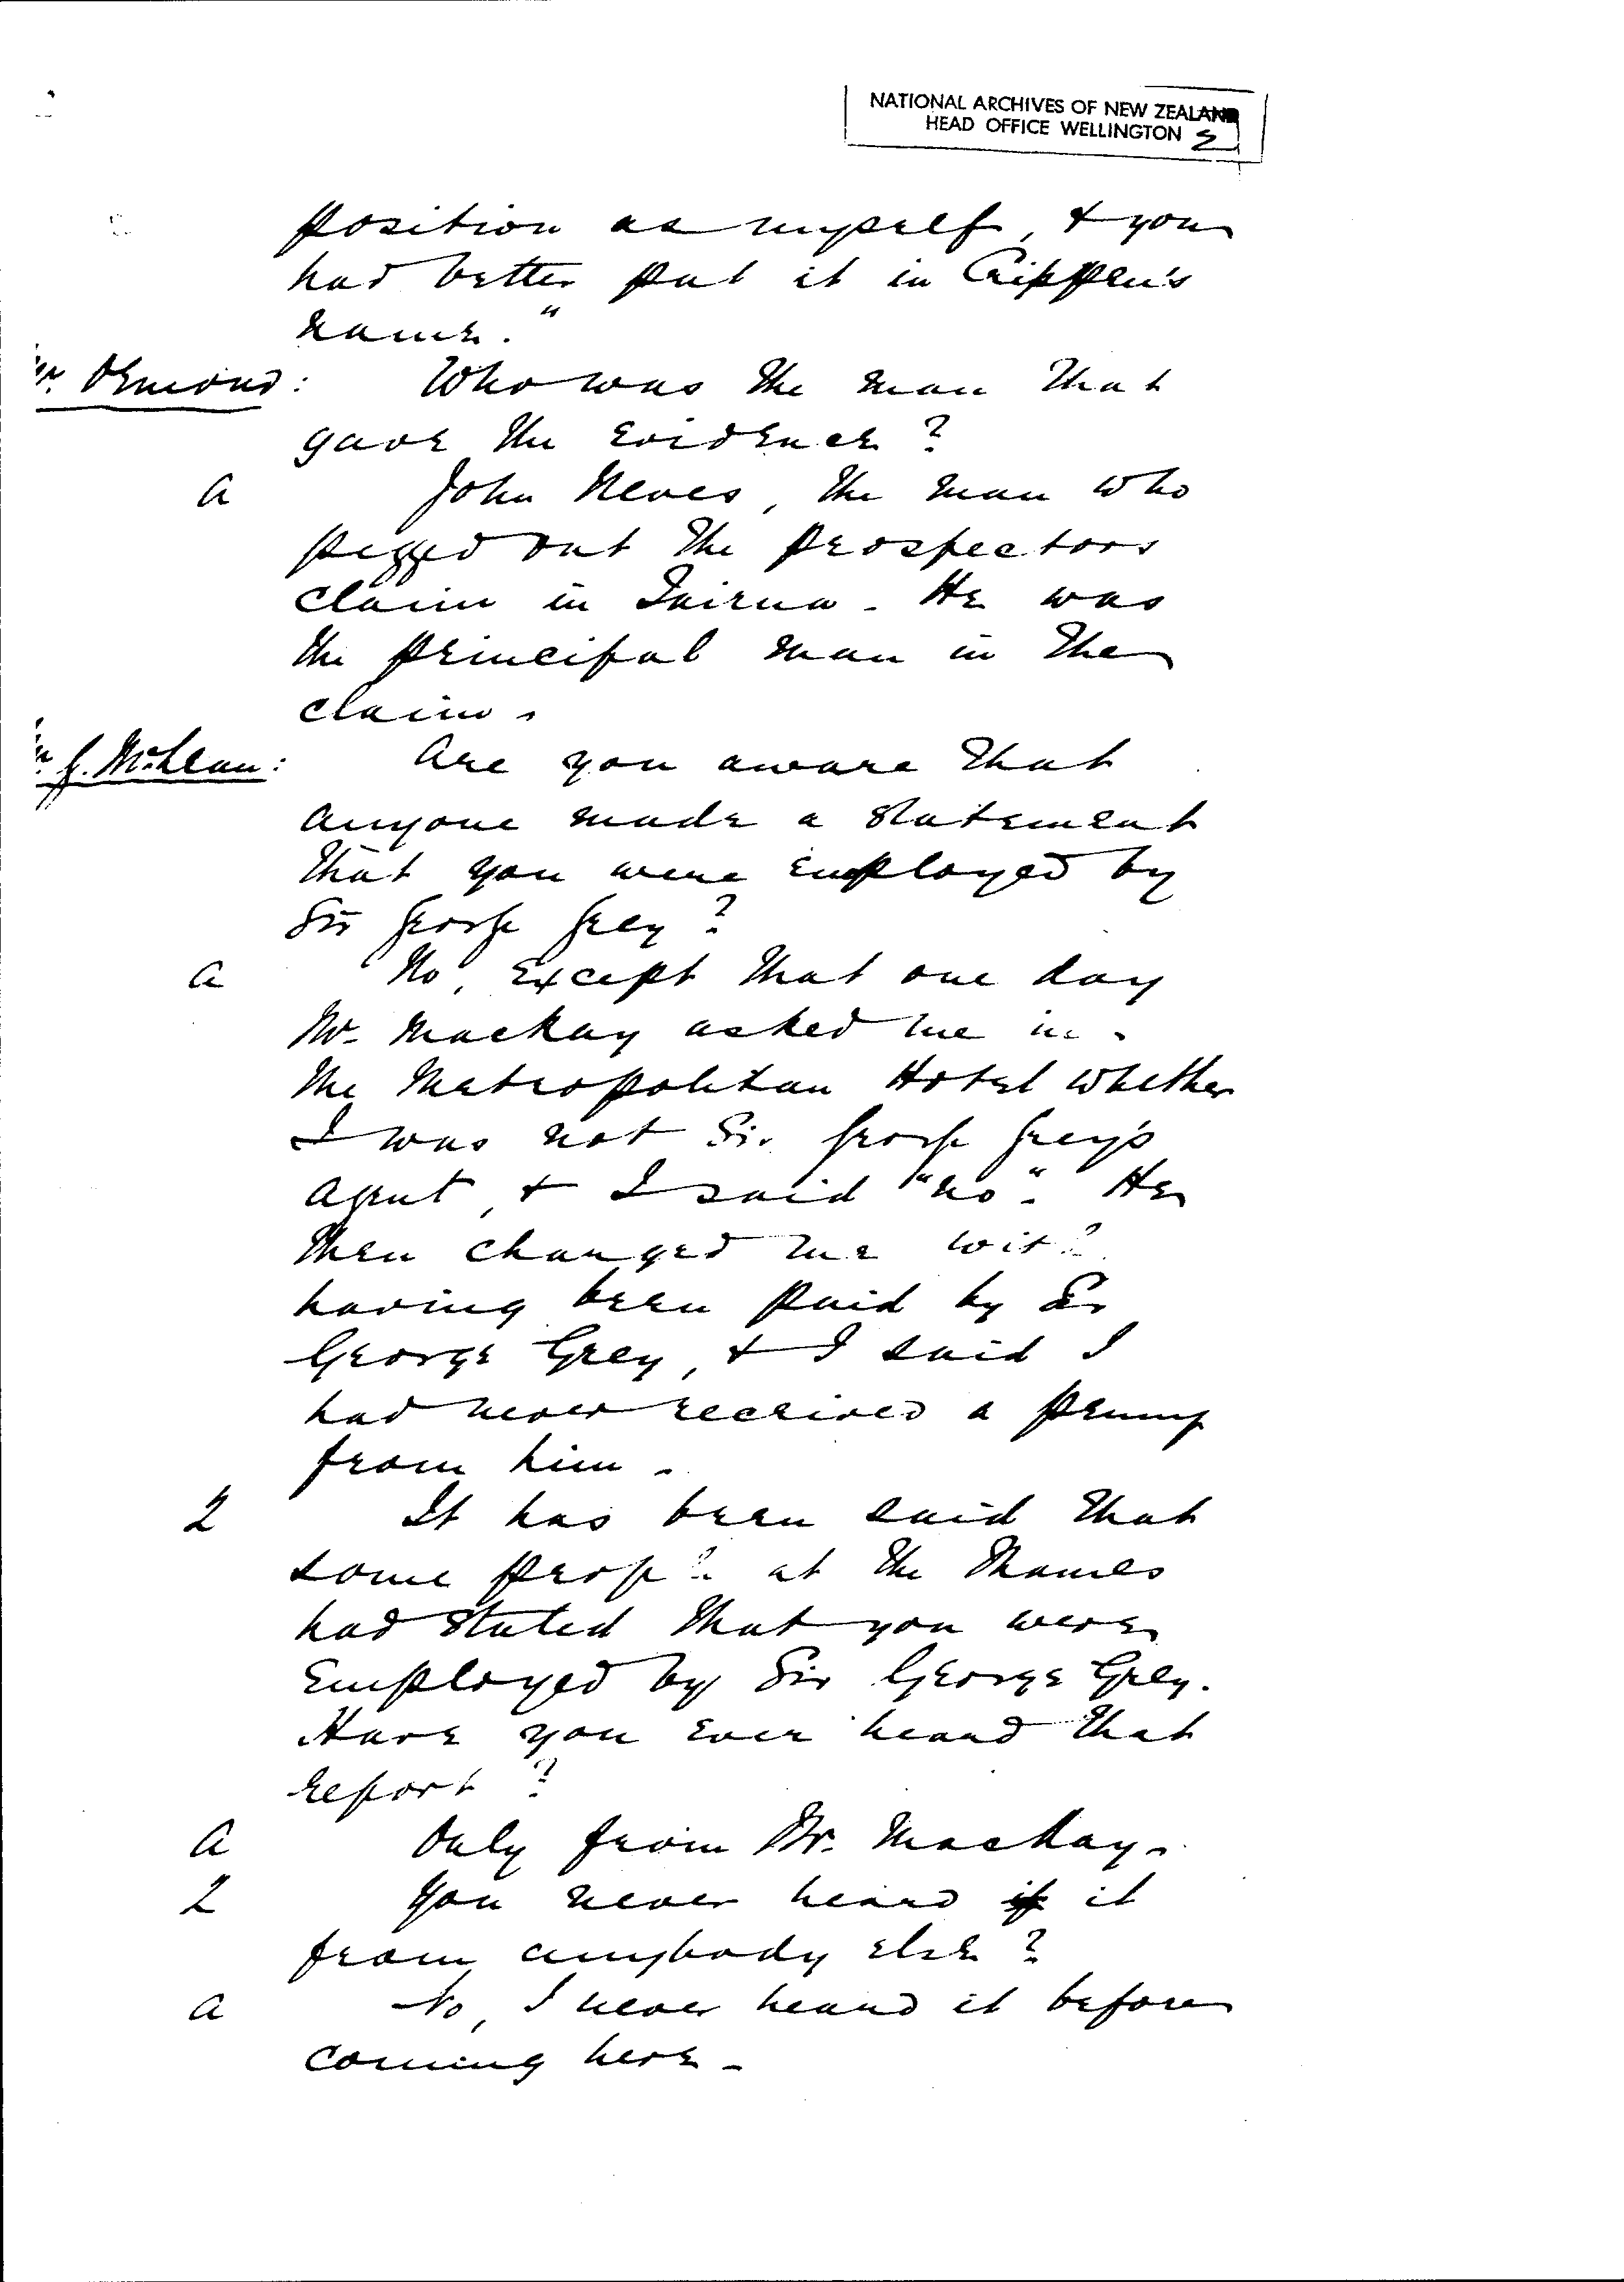 NATIONAL ARCHIVES OF NEW ZEALAND
HEAD OFFICE WELLINGTON
position as myself, & you
had better put it in Crippen's
name."
Mr. Ormond: Who was the man that
gave the evidence?
A John Neves, the man who
pegged out the prospectors
claim in Tairua. He was
the principal man in the
claim.
Mr. G. McLean: Are you aware that
anyone made a statement
that you were employed by
Sir George Grey?
A No, except that one day
Mr. Mackay asked me in
the Metropolitan Hotel whether
I was not Sir George Grey's
agent, & I said "no". He
then charged me with
having been paid by Sir
George Grey, & I said I
had never received a penny
from him.
Q It has been said that
some people at the Thames
had stated that you were
employed by Sir George Grey.
Have you ever heard that
report?
A Only from Mr. Mackay.
Q You never heard if it
from anybody else?
A No, I never heard it before
coming here.